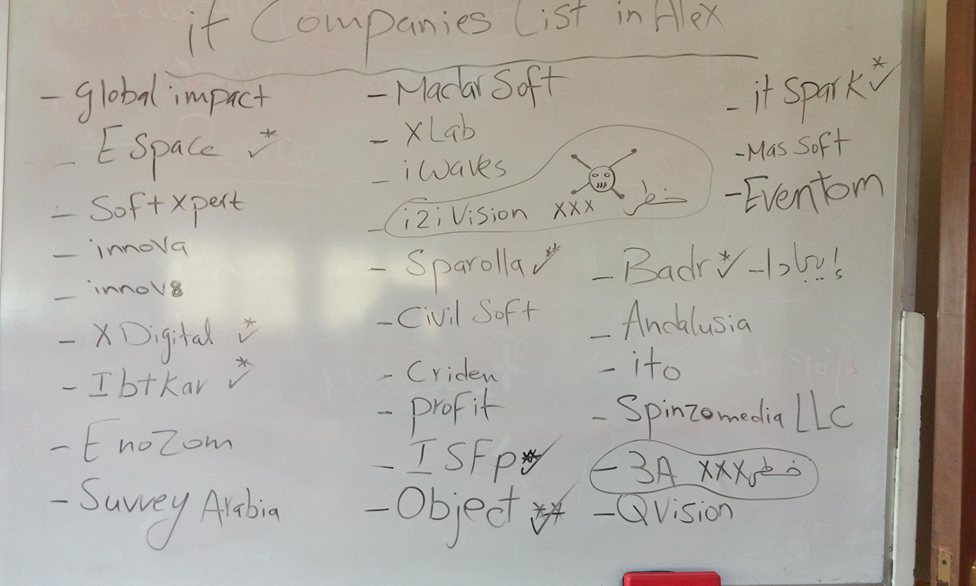 it Companies List in Alex
- global impact
- E Space *✓
- Softxpert
- innova
- innov8
- X Digital *✓
- Ibtkar *✓
- EnoZom
- Suvvey Arabia
- Madar Soft
- XLab
- iWaves
- i2i Vision XXX خطر
- Sparolla **✓
- Civil Soft
- Criden
- Profit
- ISFp *✓
- Object **✓
- it Spark *✓
- Mas Soft
- Eventom
- Badr *✓ -
- Andalusia
- ito
- Spinzomedia LLC
- 3A XXX خطر
- QVision